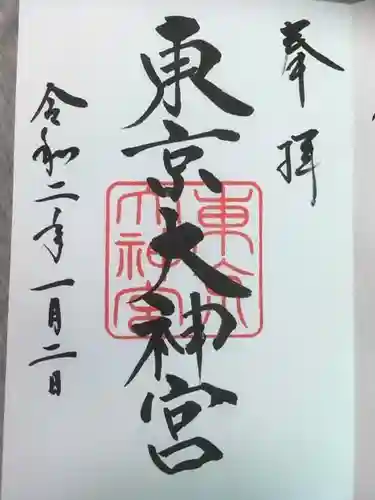 奉拝
東京大神宮
東京大神宮
令和二年一月二日